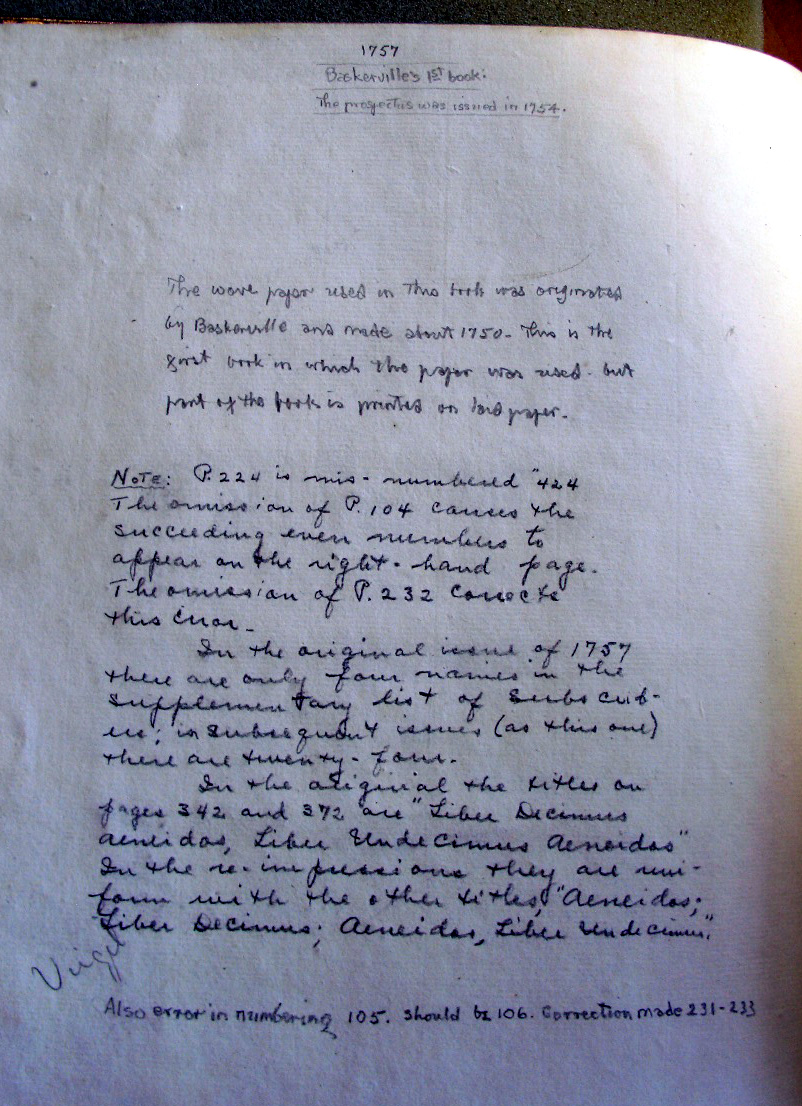 1757
Baskerville's 1st book:
The prospectus was issued in 1754.
The wove paper used in this book was originated
by Baskerville and made about 1750 - This is the
first book in which the paper was used - but
part of the book is printed on laid paper.
Note: P. 224 is mis-numbered "424
The omission of P. 104 causes the
succeeding even numbers to
appear on the right-hand page.
The omission of P. 232 corrects
this error.
In the original issue of 1757
there are only four names in the
supplementary list of subscrib-
ers; in subsequent issues (as this one)
there are twenty-four.
In the original the titles on
pages 342 and 372 are "Liber Decimus
Aeneidos, Liber Undecimus Aeneidos"
In the re-impressions they are uni-
form with the other titles, "Aeneidos;
Liber Decimus; Aeneidos, Liber Undecimus".
Virgil
Also error in numbering 105. should be 106. Correction made 231-233